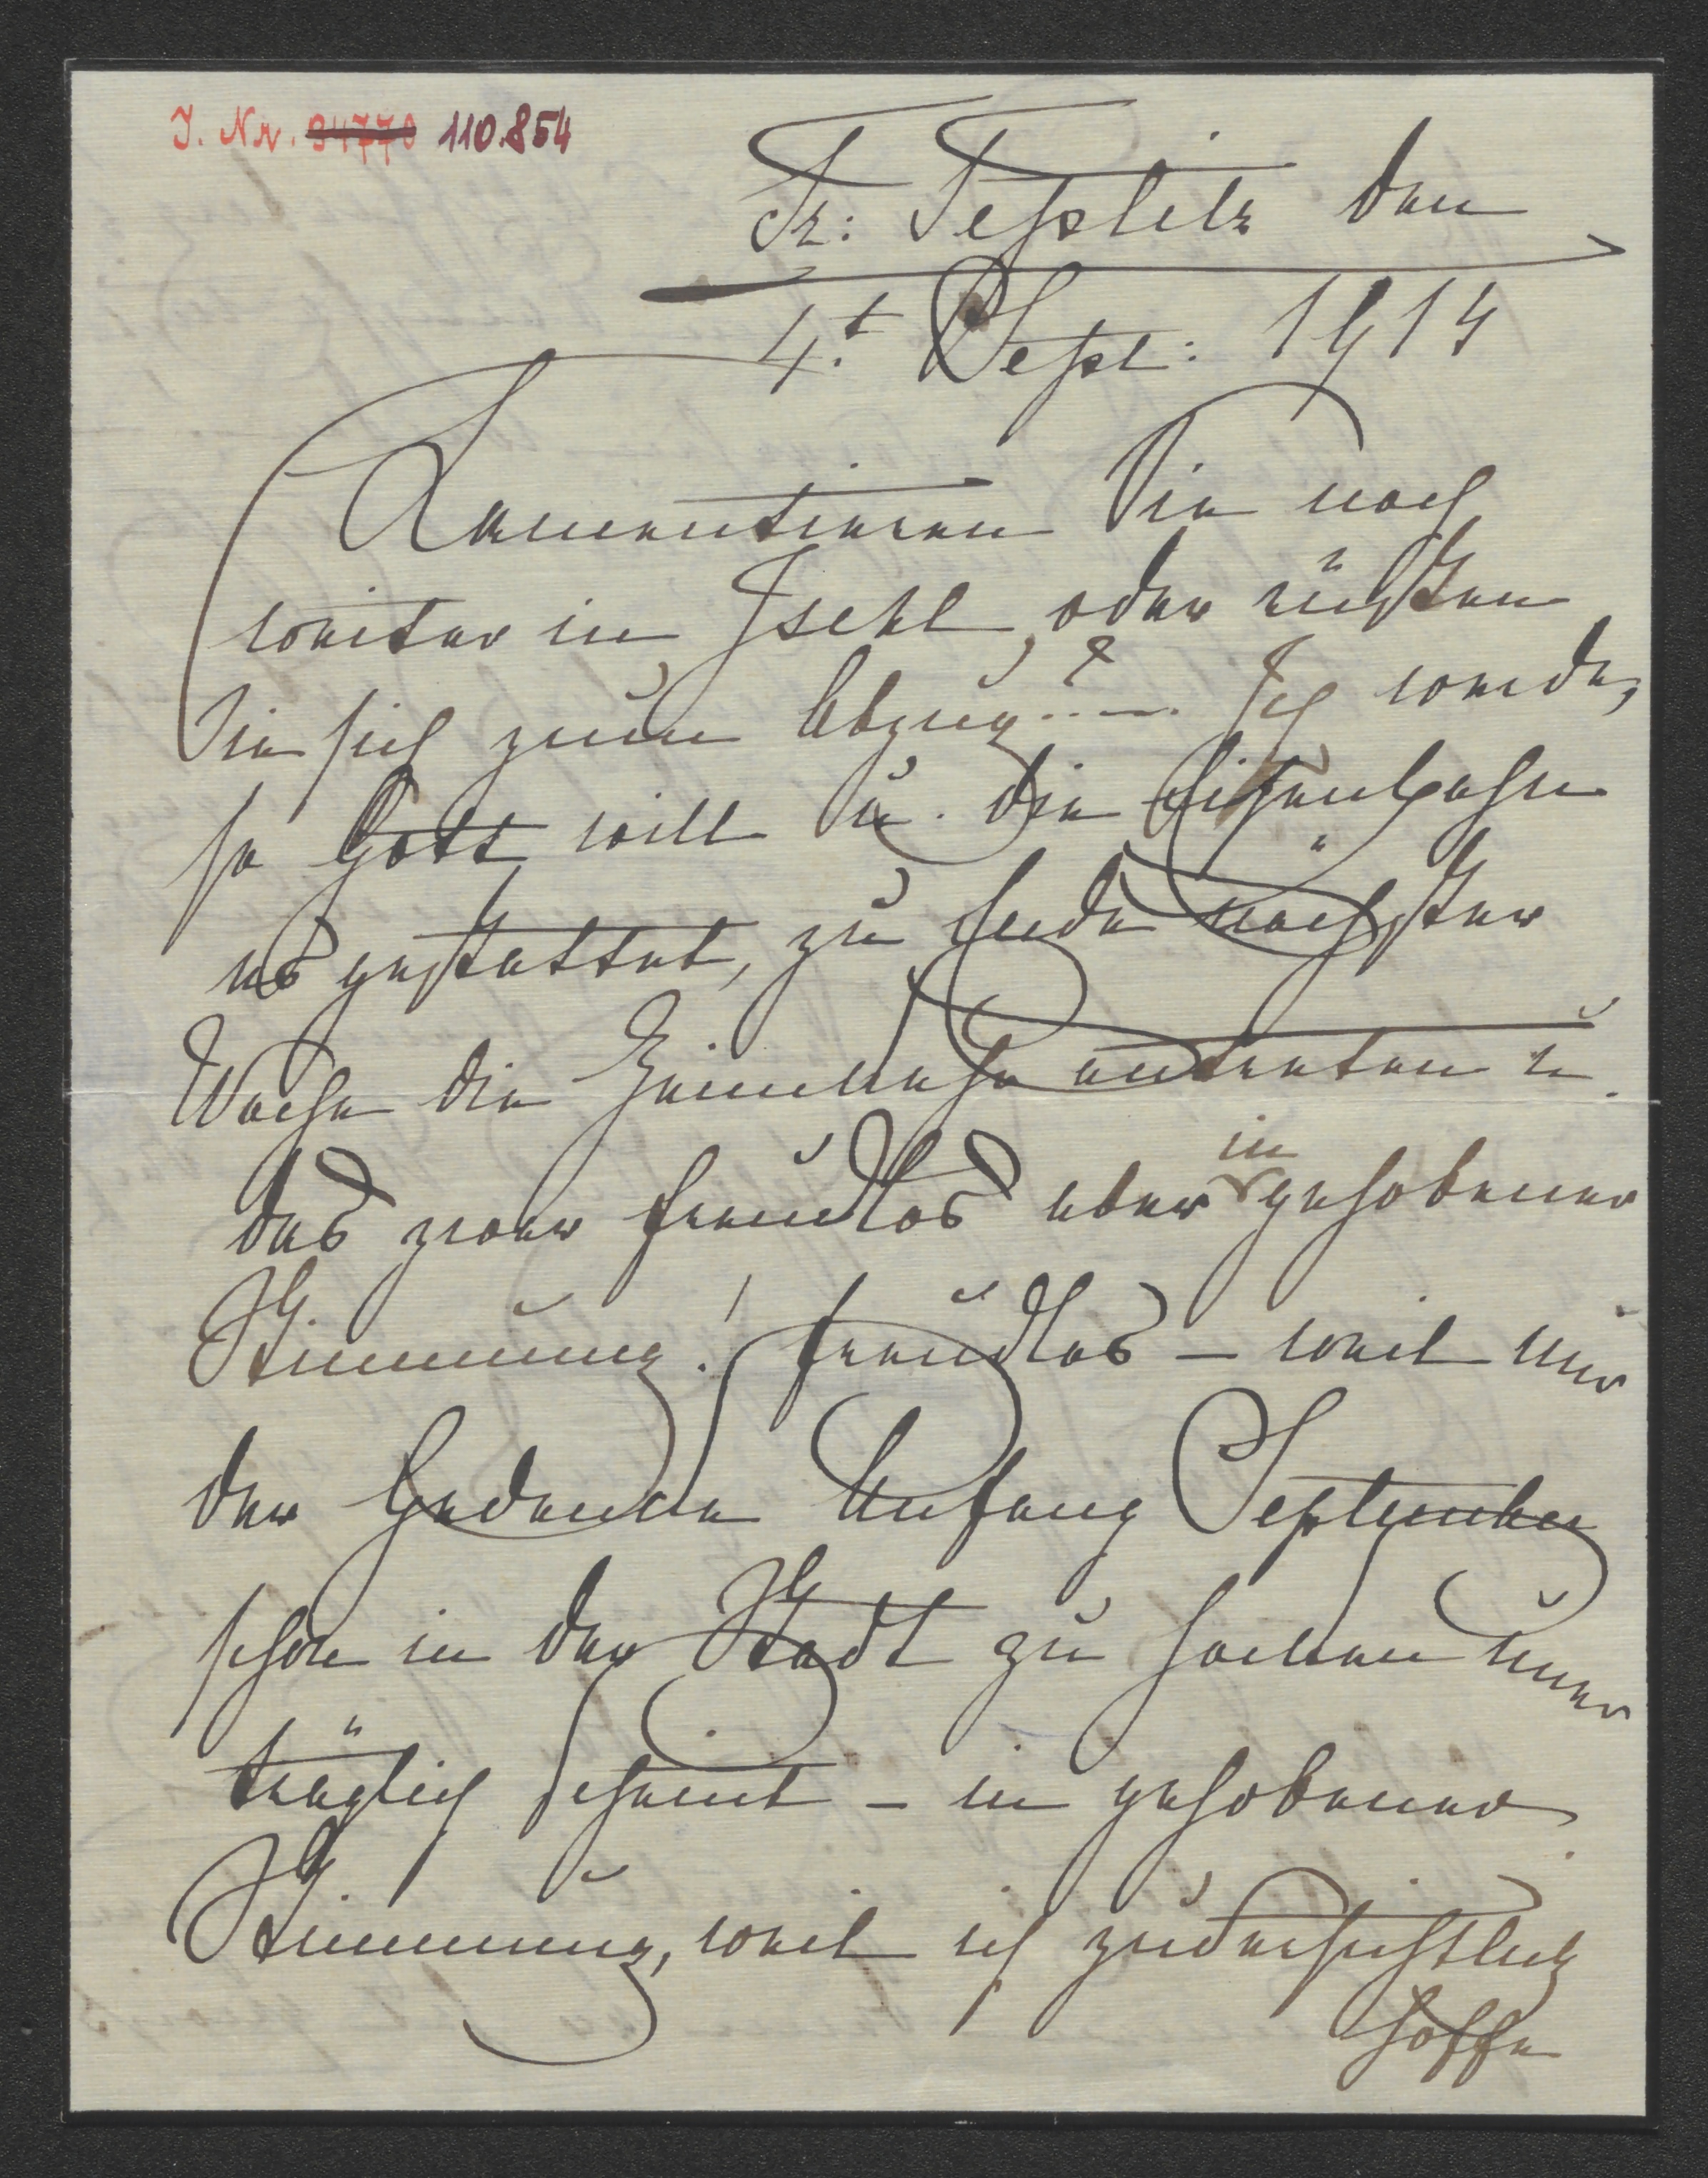 J. Nr. 34770 110.854
Tr: Teplitz den
4.t Sept: 1914
Lamentieren Sie noch
weiter in Ischl, oder rüsten
Sie sich zum Abzug..? –. Ich werde,
so Gott will u. die Eisenbahn
es gestattet, zu Ende nächster
Woche die Heimkehr antreten u.
das zwar freudlos aber in gehobener
Stimmung! freudlos – weil mir
der Gedanke Anfang September
schon in der Stadt zu hocken uner
träglich scheint – in gehobener
Stimmung, weil ich zuversichtlich
hoffe